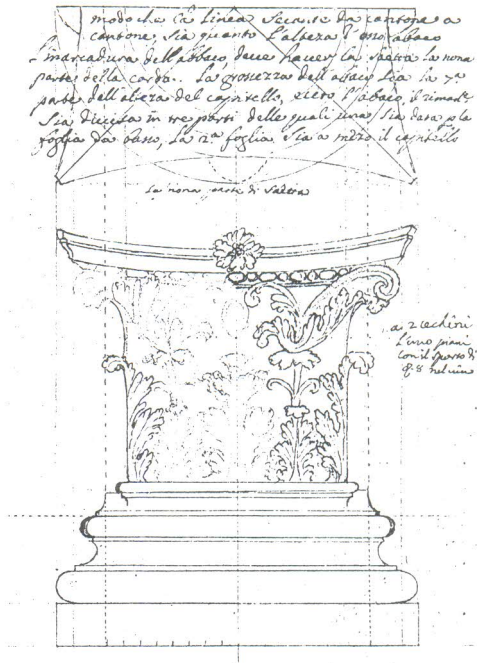 modo che la Linea secante da cantone a
cantone, sia quanto l'alteza d'esso abaco
l'inarcadura dell'abbaco deve haver la saetta la nona
parte della corda. La grossezza dell'abaco sia la 7ª
parte dell'alteza del capitello, l'abaco, il
sia divisa in tre parti delle quali una sia data p la
foglia da basso, La 2ª foglia sia a mezo il capitello
La nona parte di saetta
a 2
l'uno
con il di